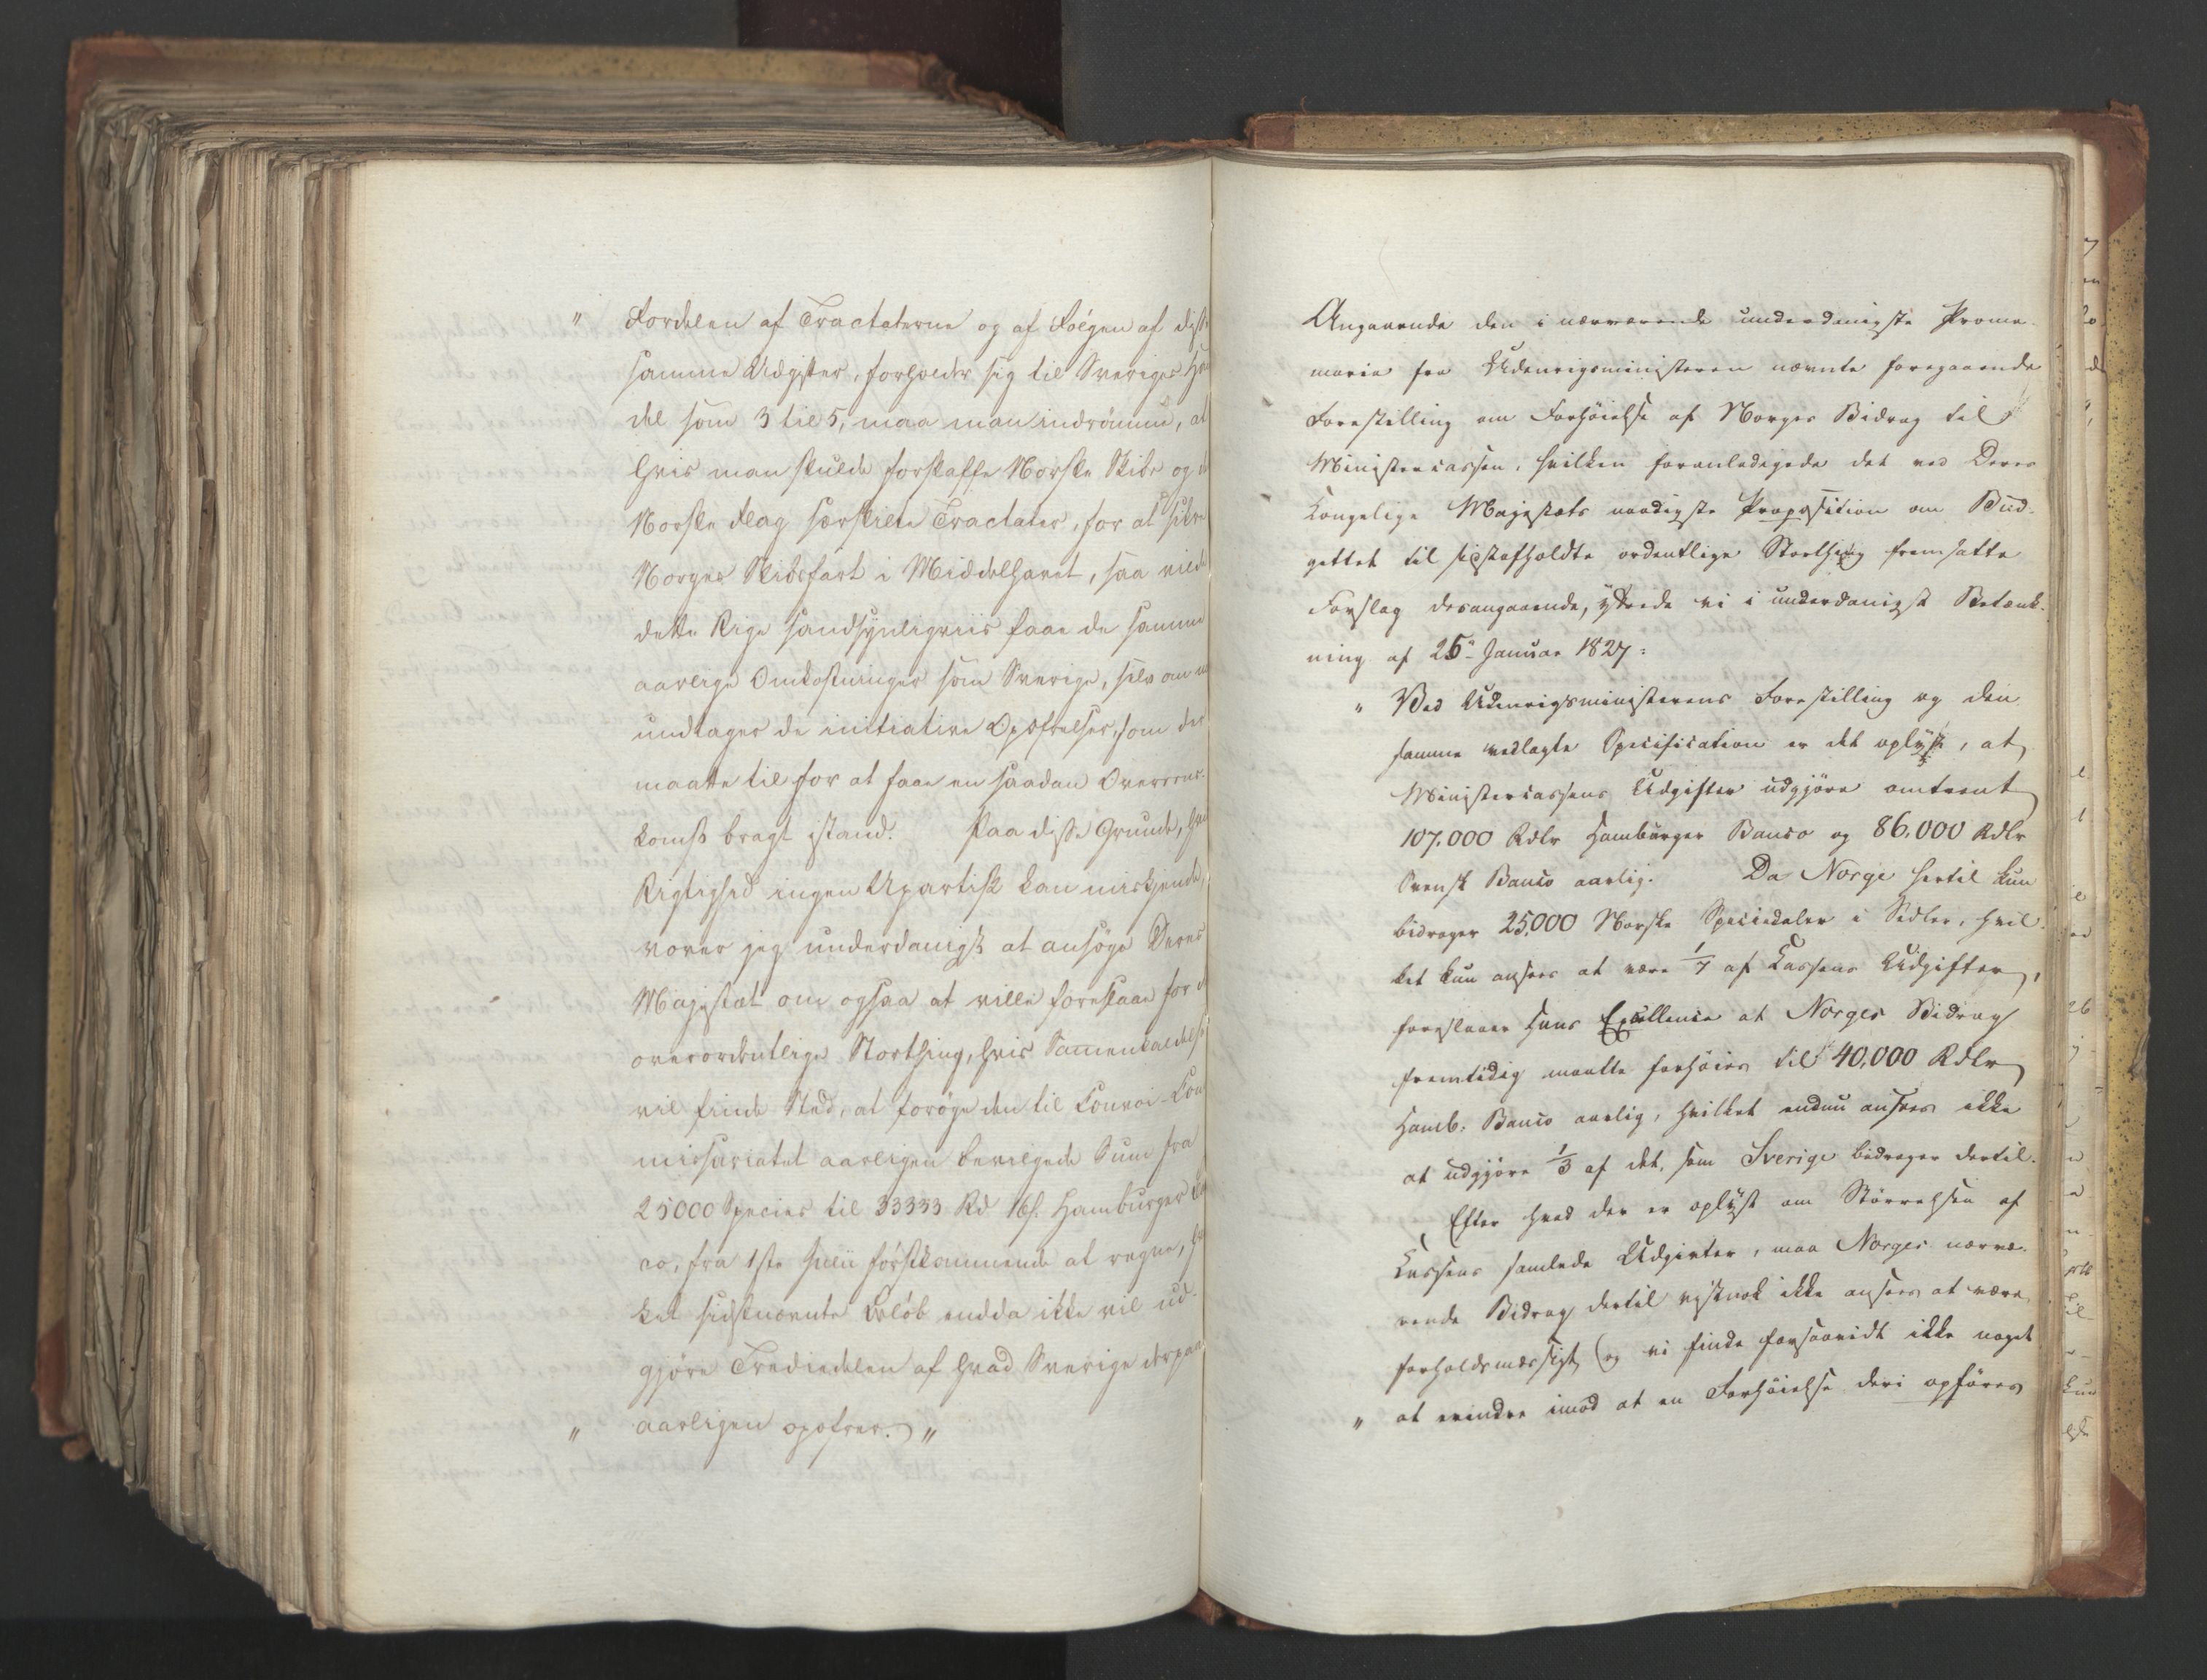 " Fordelen af Tractaterne og af Følgen af disse
samme Udgifter, forholder sig til Sveriges Han
del som 3 til 5, maa man indrømme, at
hvis man skulde forskaffe Norske Skibe og
Norske Flag særskilte Tractater, for at sikre
Norges Skibsfart i Middelhavet, saa vilde
dette Rige sandsynligviis faae de samme
aarlige Omkostninger som Sverige, selv om
undtages de initiative Opoffrelser, som der
maatte til for at faae en saadan Overeens-
komst bragt istand. Paa disse Grunde, hvis
Rigtighed ingen Upartisk kan miskjende,
vover jeg underdanigst at ansøge Deres
Majestæt om ogsaa at ville foreslaae for
overordentlige Storthing, hvis Sammenkaldelse
vil finde Sted, at forøge den til Convoi-Com
missariatet aarligen bevilgede Sum fra
25000 Species til 33333 Rd 16 s. Hamburger Ban
co, fra 1ste Julii førstkommende at regne, hvil
ket sidstnævnte Beløb endda ikke vil ud-
gjøre Trediedelen af hvad Sverige derpaa
" aarligen opofrer. "
Angaaende den i nærværende underdanigste Prome-
moria fra Udenrigsministeren nævnte foregaaende
Forestilling om Forhøielse af Norges Bidrag til
Ministercassen, hvilken foranledigede det ved Deres
Kongelige Majestæts naadigste Proposition om Bud-
gettet til sidstafholdte ordentlige Storthing fremsatte
Forslag desangaaende, yttrede vi i underdanigst Betænk-
ning af 25de Januar 1827:
" Ved Udenrigsministerens Forestilling og den
samme vedlagte Specification er det oplyst, at
Ministercassens Udgifter udgjøre omtrent
107.000 Rdlr Hamburger Banco og 86.000 Rdlr
Svensk Banco aarlig. Da Norge hertil kun
bidrager 25,000 Norske Speciedaler i Sedler, hvil-
ket kun ansees at være 1/7 af Cassens Udgifter,
foreslaaer Hans Excellence at Norges Bidrag
fremtidig maatte forhøies til 40,000 Rdlr
Hamb. Banco aarlig, hvilket endnu ansees ikke
at udgjøre 1/3 af det, som Sverige bidrager dertil.
Efter hvad der er oplyst om Størrelsen af
Cassens samlede Udgivter, maa Norges nærvæ-
rende Bidrag dertil vistnok ikke ansees at være
forholdsmæssigt, og vi finde forsaavidt ikke noget
" at erindre imod at en Forhøielse deri opføres